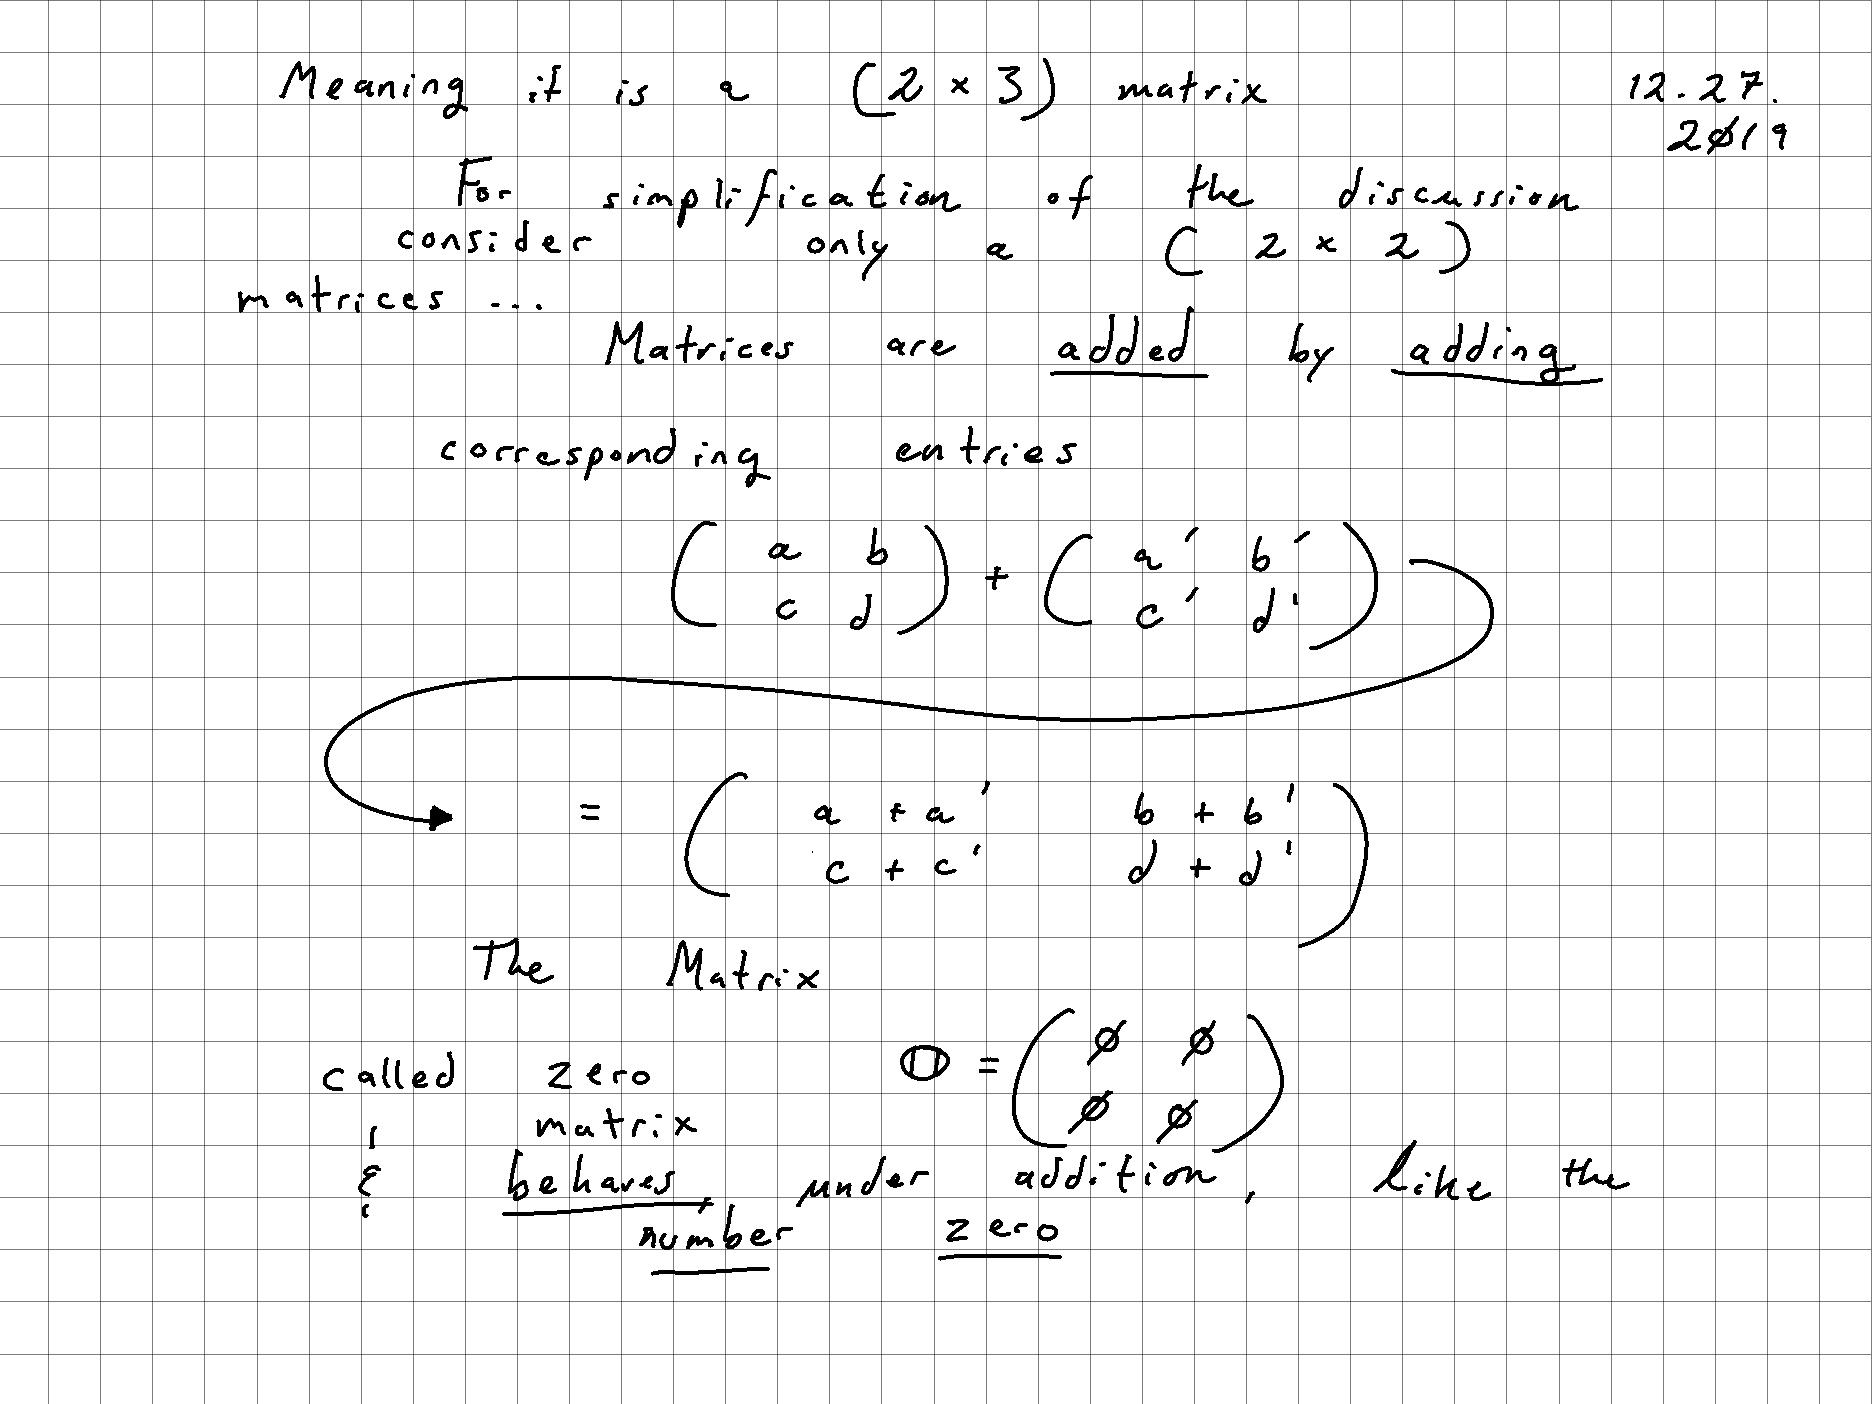 Meaning it is a (2 × 3) matrix 12.27.
2019
For simplification of the discussion
consider only a ( 2 × 2 )
matrices ...
Matrices are added by adding
corresponding entries
( a b ) + ( a′ b′ )
( c d ) ( c′ d′ )
= ( a + a′ b + b′ )
( c + c′ d + d′ )
The Matrix
called zero 𝟘 = ( 0 0 )
matrix ( 0 0 )
& behaves, under addition, like the
number zero